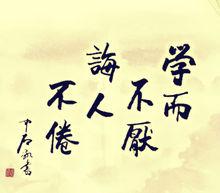 学而
不厭
誨人
不倦